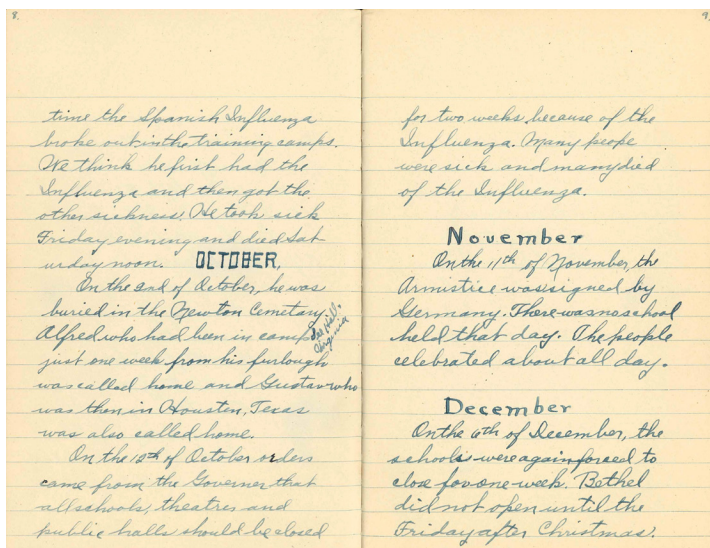 8.
time the Spanish Influenza
broke out in the training camps.
We think he first had the
Influenza and then got the
other sickness. He took sick
Friday evening and died Sat
urday noon. OCTOBER.
On the 2nd of October, he was
buried in the Newton Cemetary
Alfred who had been in camp Lee Hill, Virginia
just one week from his furlough
was called home and Gustav who
was then in Houston, Texas
was also called home.
On the 12th of October orders
came from the Governer that
all schools, theatres and
public halls should be closed
9.
for two weeks, because of the
Influenza. Many peope
were sick and many died
of the Influenza.
November
On the 11th of November, the
Armistice was signed by
Germany. There was no school
held that day. The people
celebrated about all day.
December
On the 6th of December, the
schools were again forced to
close for one week. Bethel
did not open until the
Friday after Christmas.